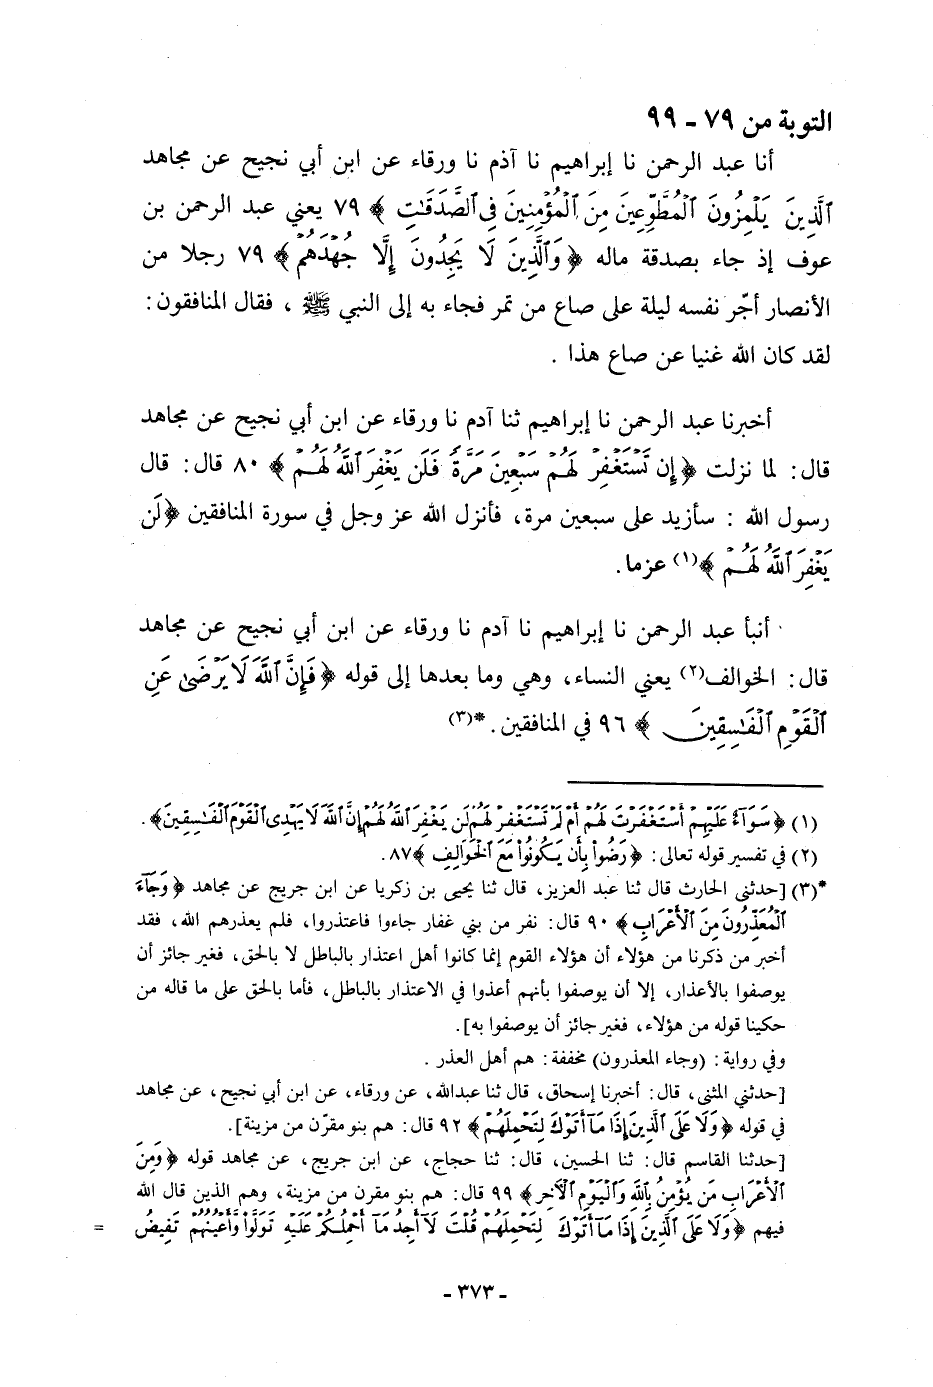 التوبة من ٧٩ - ٩٩
أنا عبد الرحمن نا إبراهيم نا آدم نا ورقاء عن ابن أبي نجيح عن مجاهد
ٱلَّذِينَ يَلْمِزُونَ ٱلْمُطَّوِّعِينَ مِنَ ٱلْمُؤْمِنِينَ فِى ٱلصَّدَقَٰتِ ﴾ ٧٩ يعني عبد الرحمن بن
عوف إذ جاء بصدقة ماله ﴿ وَٱلَّذِينَ لَا يَجِدُونَ إِلَّا جُهْدَهُمْ ﴾ ٧٩ رجلا من
الأنصار أجّر نفسه ليلة على صاع من تمر فجاء به إلى النبي ﷺ ، فقال المنافقون:
لقد كان الله غنيا عن صاع هذا .
أخبرنا عبد الرحمن نا إبراهيم ثنا آدم نا ورقاء عن ابن أبي نجيح عن مجاهد
قال: لما نزلت ﴿ إِن تَسْتَغْفِرْ لَهُمْ سَبْعِينَ مَرَّةً فَلَن يَغْفِرَ ٱللَّهُ لَهُمْ ﴾ ٨٠ قال: قال
رسول الله : سأزيد على سبعين مرة، فأنزل الله عز وجل في سورة المنافقين ﴿ لَن
يَغْفِرَ ٱللَّهُ لَهُمْ ﴾(١) عزما.
أنبأ عبد الرحمن نا إبراهيم نا آدم نا ورقاء عن ابن أبي نجيح عن مجاهد
قال: الخوالف(٢) يعني النساء، وهي وما بعدها إلى قوله ﴿ فَإِنَّ ٱللَّهَ لَا يَرْضَىٰ عَنِ
ٱلْقَوْمِ ٱلْفَٰسِقِينَ ﴾ ٩٦ في المنافقين .*(٣)
(١) ﴿ سَوَآءٌ عَلَيْهِمْ أَسْتَغْفَرْتَ لَهُمْ أَمْ لَمْ تَسْتَغْفِرْ لَهُمْ لَن يَغْفِرَ ٱللَّهُ لَهُمْ إِنَّ ٱللَّهَ لَا يَهْدِى ٱلْقَوْمَ ٱلْفَٰسِقِينَ ﴾ .
(٢) في تفسير قوله تعالى: ﴿ رَضُوا۟ بِأَن يَكُونُوا۟ مَعَ ٱلْخَوَالِفِ ﴾ ٨٧.
*(٣) [حدثني الحارث قال ثنا عبد العزيز، قال ثنا يحيى بن زكريا عن ابن جريج عن مجاهد ﴿ وَجَآءَ
ٱلْمُعَذِّرُونَ مِنَ ٱلْأَعْرَابِ ﴾ ٩٠ قال: نفر من بني غفار جاءوا فاعتذروا، فلم يعذرهم الله، فقد
أخبر من ذكرنا من هؤلاء أن هؤلاء القوم إنما كانوا أهل اعتذار بالباطل لا بالحق، فغير جائز أن
يوصفوا بالأعذار، إلا أن يوصفوا بأنهم أعذوا في الاعتذار بالباطل، فأما بالحق على ما قاله من
حكينا قوله من هؤلاء، فغير جائز أن يوصفوا به].
وفي رواية: (وجاء المعذرون) مخففة: هم أهل العذر .
[حدثني المثنى، قال: أخبرنا إسحاق، قال ثنا عبدالله، عن ورقاء، عن ابن أبي نجيح، عن مجاهد
في قوله ﴿ وَلَا عَلَى ٱلَّذِينَ إِذَا مَآ أَتَوْكَ لِتَحْمِلَهُمْ ﴾ ٩٢ قال: هم بنو مقرّن من مزينة].
[حدثنا القاسم قال: ثنا الحسين، قال: ثنا حجاج، عن ابن جريج، عن مجاهد قوله ﴿ وَمِنَ
ٱلْأَعْرَابِ مَن يُؤْمِنُ بِٱللَّهِ وَٱلْيَوْمِ ٱلْآخِرِ ﴾ ٩٩ قال: هم بنو مقرن من مزينة، وهم الذين قال الله
فيهم ﴿ وَلَا عَلَى ٱلَّذِينَ إِذَا مَآ أَتَوْكَ لِتَحْمِلَهُمْ قُلْتَ لَآ أَجِدُ مَآ أَحْمِلُكُمْ عَلَيْهِ تَوَلَّوا۟ وَّأَعْيُنُهُمْ تَفِيضُ =
- ٣٧٣ -